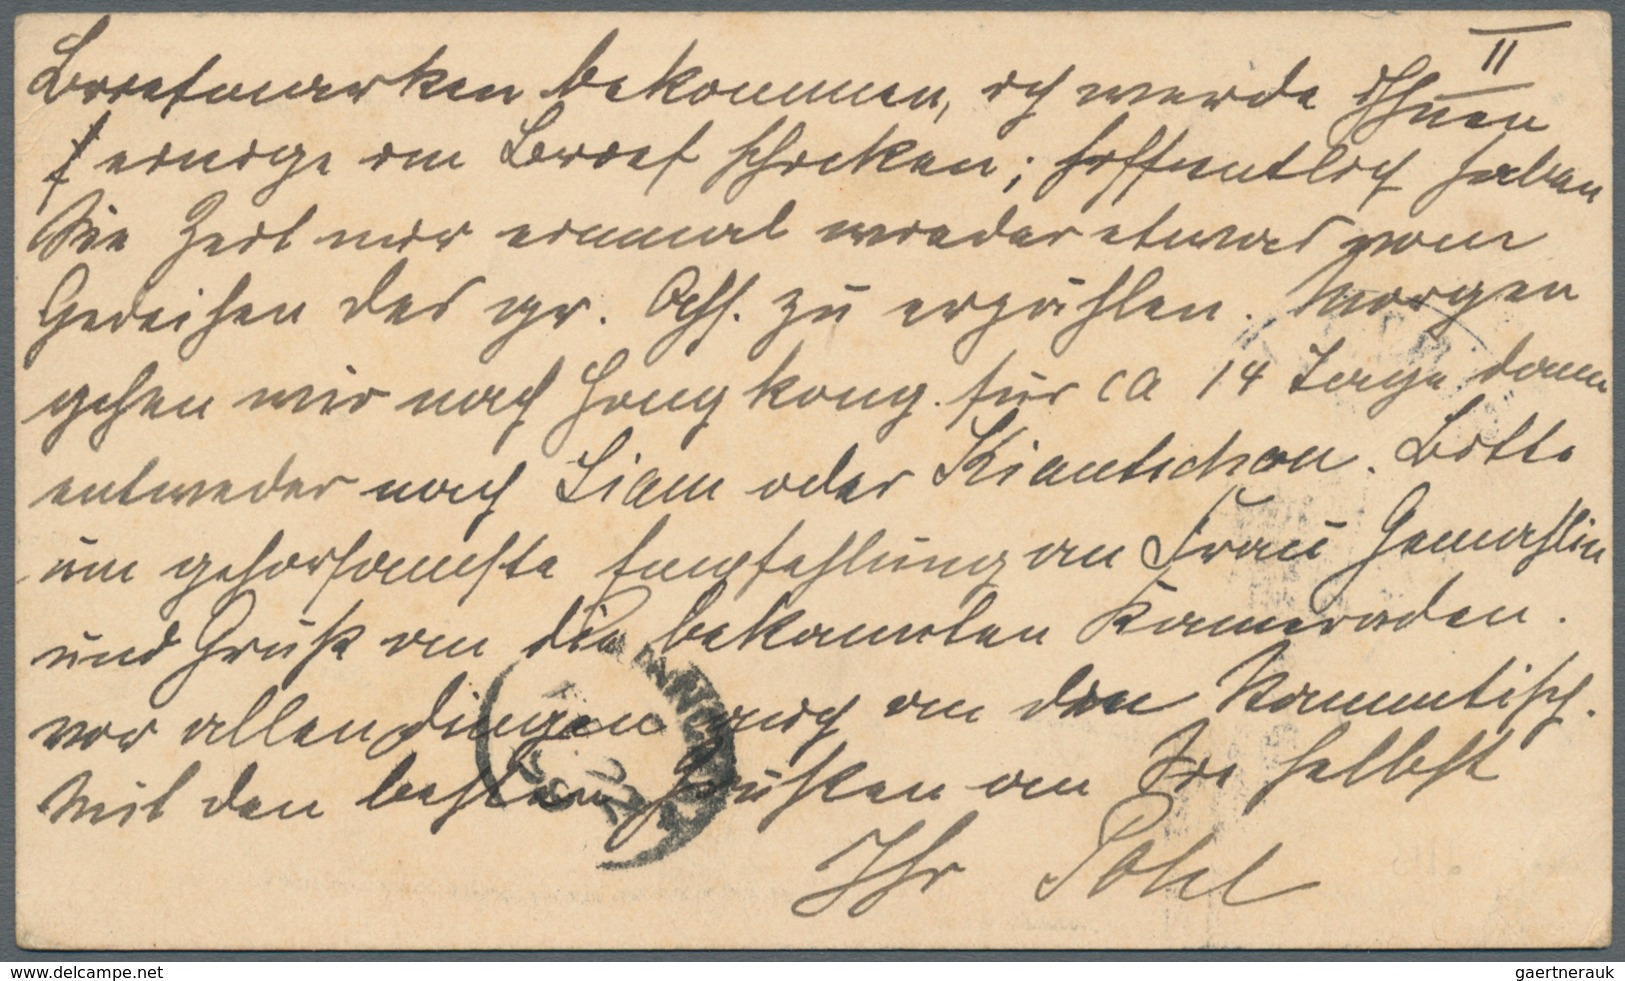 II
Briefmarken bekommen, ich werde Ihnen
einige im Brief schicken; hoffentlich haben
Sie Zeit mir einmal wieder etwas vom
Gedeihen des gr. zu erzählen. Morgen
gehen wir nach Hongkong für ca 14 Tage dann
entweder nach Siam oder Kiautschou. Bitte
um gehorsamste Empfehlung an Frau Gemahlin
und Gruß an die bekannten Kameraden.
vor allen dingen auch an den Stammtisch.
Mit den besten Grüßen an Sie selbst
Ihr Pohl
www.delcampe.net
gaertnerauk